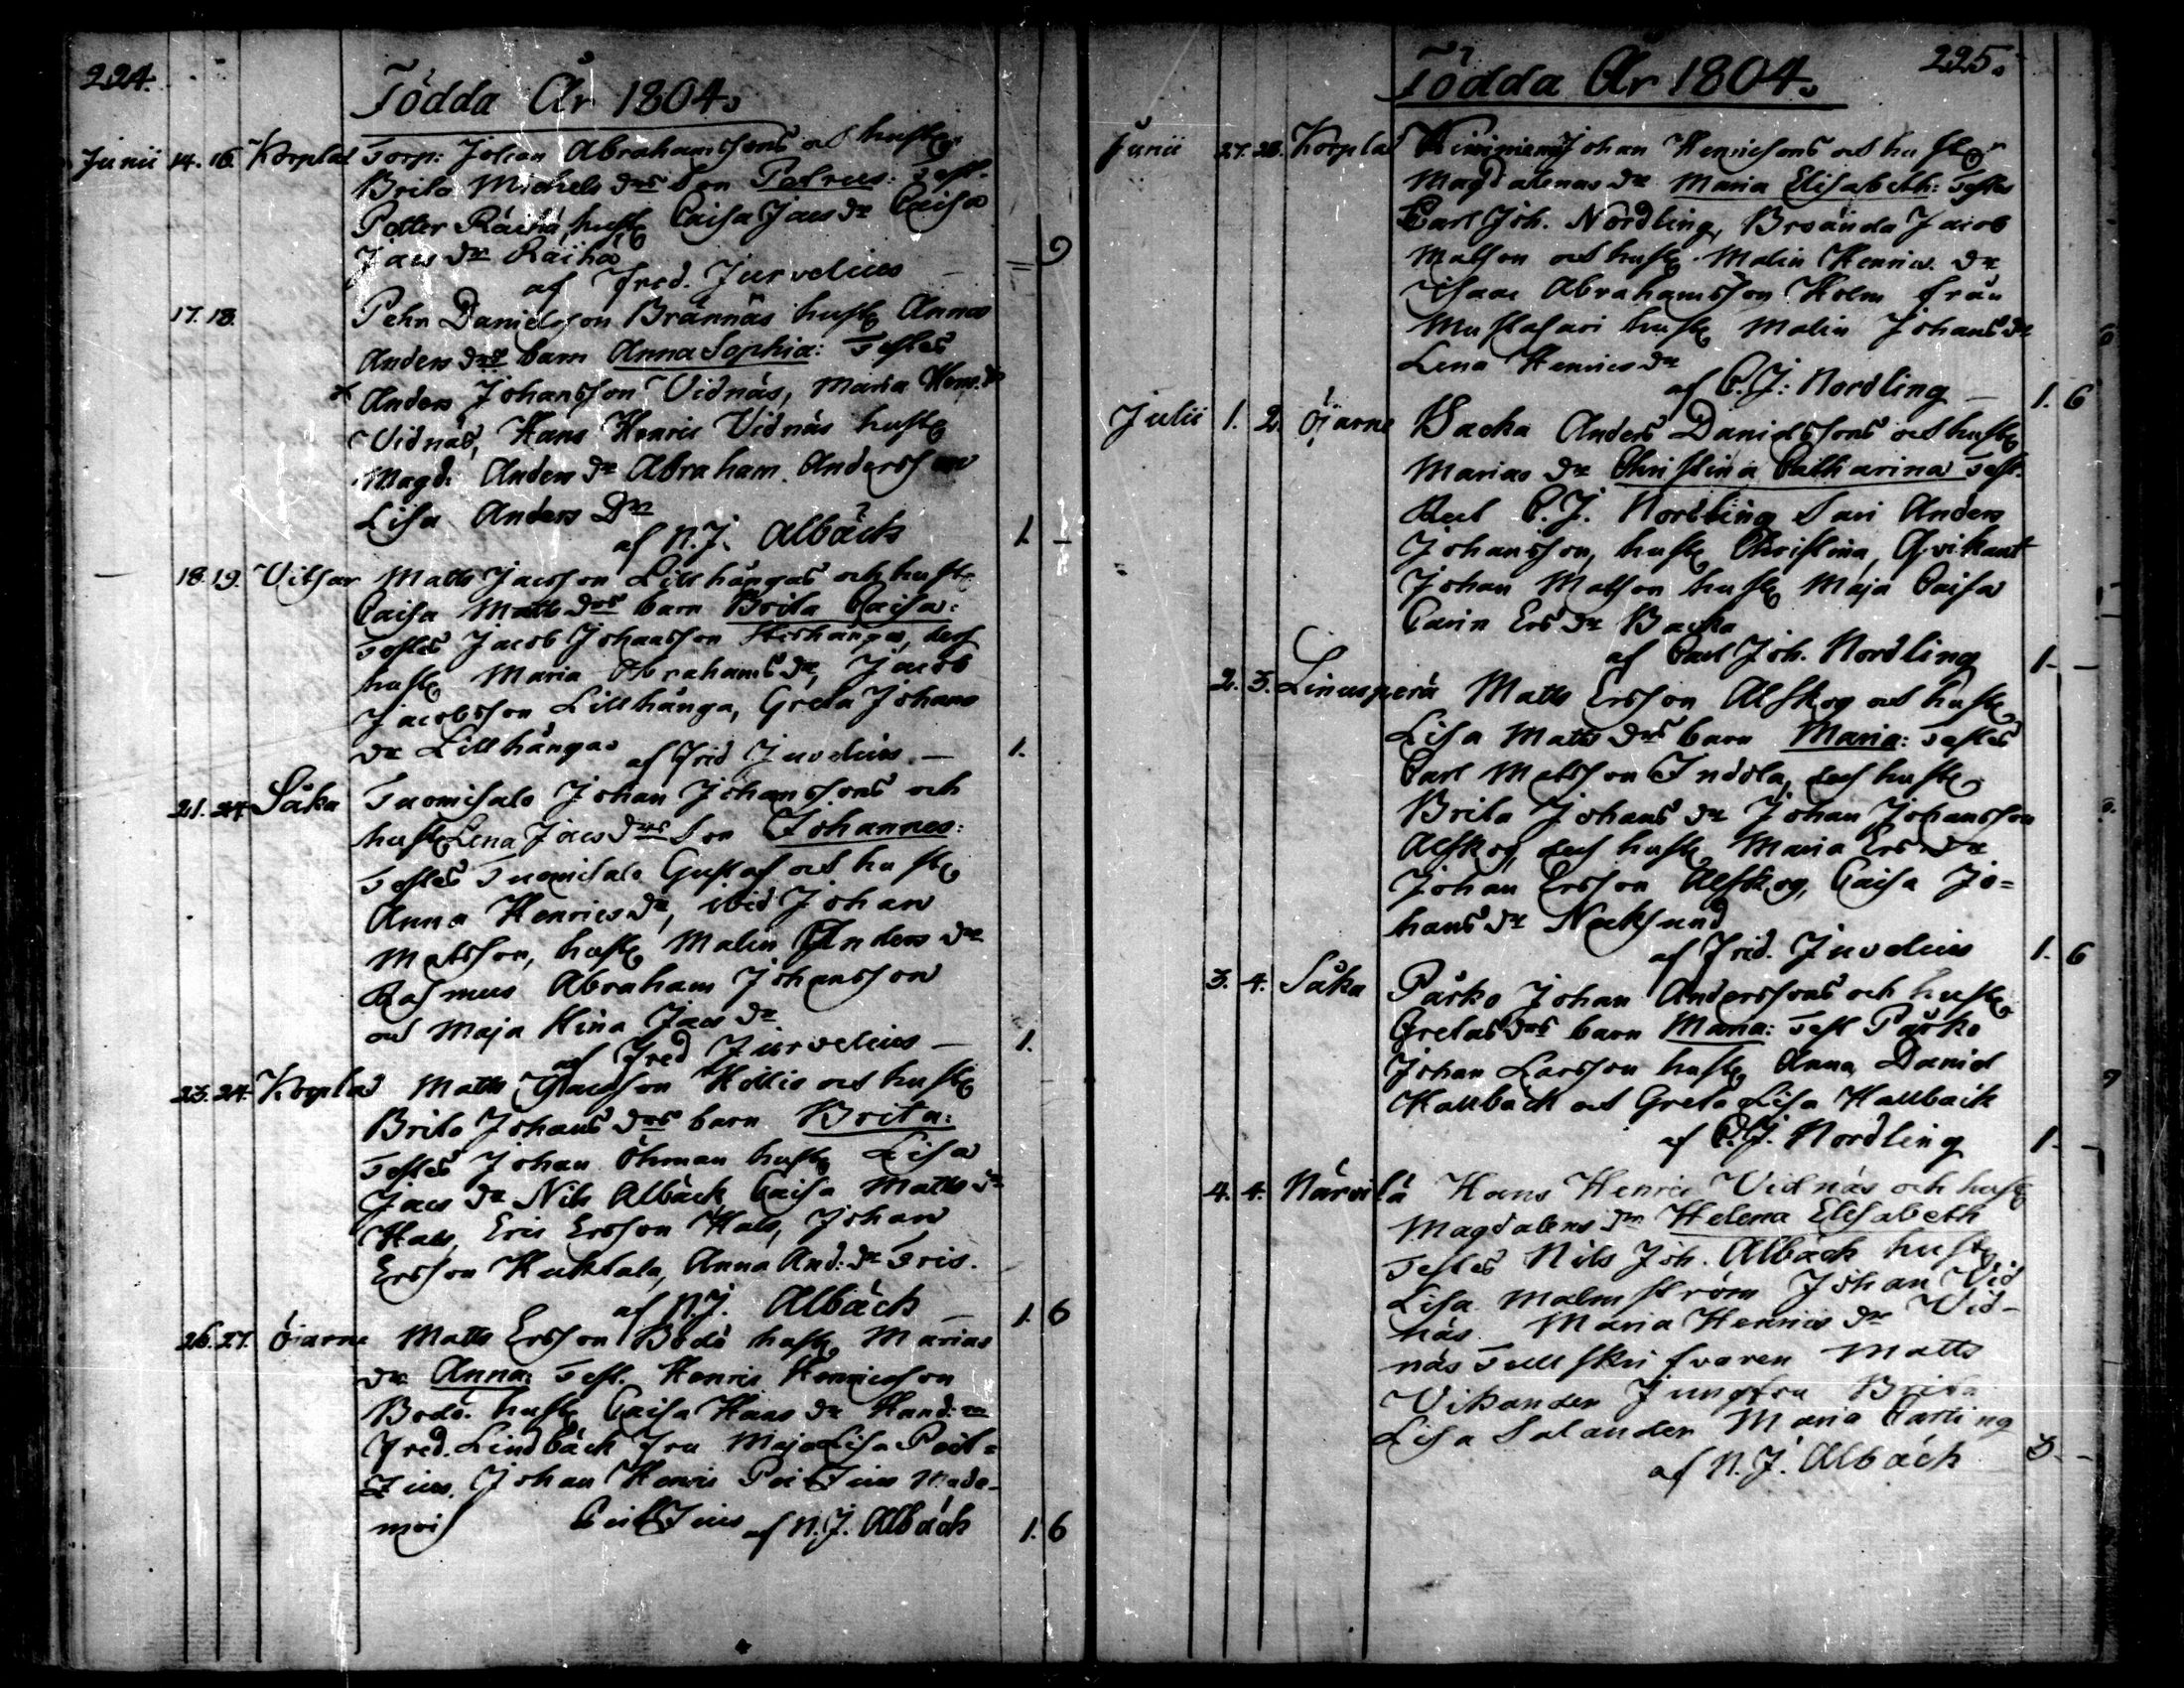 224.
Födda År 1804.
Junii 14. 16. Korplax Torp: Johan Abrahamssons och hustr
Brita Michels drs Son Petrus: Test.
Petter Räihä, hustr Caisa Jacs dr Caisa
Jacs dr Räihä
af Fred. Jurvelius — = 9
17. 18. Pehr Danielsson Brännäs hustr Annas
Anders drs barn Anna Sophia: Testes
Anders Johansson Vidnäs, Maria Henr. dr
Vidnäs, Hans Henric Vidnäs hustr
Magd: Anders dr Abraham Andersson
Lisa Anders Dr
af N. J. Albäck 1. —
18. 19. Vitsar Matts Jacsson Lillhångas och hustr
Caisa Matts drs barn Brita Caisa:
Testes Jacob Johansson Storhånga, dess
hustr Maria Abrahams dr, Jacob
Jacobsson Lillhånga, Greta Johans
dr Lillhångas af Frid Juvelius — 1.
21. 24. Såka Tuomisalo Johan Johanssons och
hustr Lena Jacs drs Son Johannes:
Testes Tuomisalo Gustaf och hustr
Anna Henrics dr, ibid Johan
Matsson, hustr Malin Anders dr
Rasmus Abraham Johansson
och Maja Stina Jacs dr
af Fred Jurvelius — 1.
23. 24. Korplax Matts Jacsson Höllis och hustr
Brita Johans drs barn Brita:
Testes Johan Öhman hustr Lisa
Jacs dr Nils Albäck Caisa Matts dr
Hals, Eric Ersson Hals, Johan
Ersson Huktala, Anna And: dr Fris.
af N. J. Albäck — 1. 6
26. 27. Öjarne Matts Ersson Bodö hustr Marias
dr Anna: Test. Henric Henricsson
Bodö. hustr Caisa Hans dr Hand:
Fred. Lindbäck Fru Maja Lisa Peit-
zius. Johan Henric Peitzius Made-
mois Peitzius af N. J. Albäck 1. 6
225.
Födda År 1804.
Junii 27. 28. Korplax Kiviniemi Johan Henricsons och hustr
Magdalenas dr Maria Elisabeth: Testes
Carl Joh. Nordling, Broända Jacob
Matson och hustr Malin Henrics dr
Isaac Abrahamsson Holm från
Mustasari hustr Malin Johans dr
Lena Henrics dr
af C. J: Nordling — 1. 6
Julii 1. 2. Öjarne Backa Anders Danielssons och hustr
Marias dr Christina Catharina Test.
C. J. Nordling Sari Anders
Johansson, hustr Christina, Qvikant
Johan Matson hustr Maja Caisa
Carin Ers dr Backa
af Carl Joh. Nordling 1. —
2. 3. Linusperä Matts Ersson Alskog och hustr
Lisa Matts drs barn Maria: Testes
Carl Matsson Indola, dess hustr
Brita Johans dr Johan Johansson
Alskog, dess hustr Maria Ers dr
Johan Ersson Alskog, Caisa Jo=
hans dr Neksund
af Frid. Juvelius 1. 6
3. 4. Såka Påsko Johan Anderssons och hustr
Gretas drs barn Maria: Test Påsko
Johan Larsson hustr Anna, Daniel
Hallbäck och Greta Lisa Hallbäck
af C. J. Nordling 1. —
4. 4. Närvilä Hans Henric Vidnäs och hustr
Magdalens dr Helena Elisabeth
Testes Nils Joh. Albäck hustr
Lisa Malmström Johan Vid
näs Maria Henrics dr Vid-
näs Tullskrifvaren Matts
Vikander Jungfru Brita
Lisa Salander Maria Carling
af N. J. Albäck 3 —